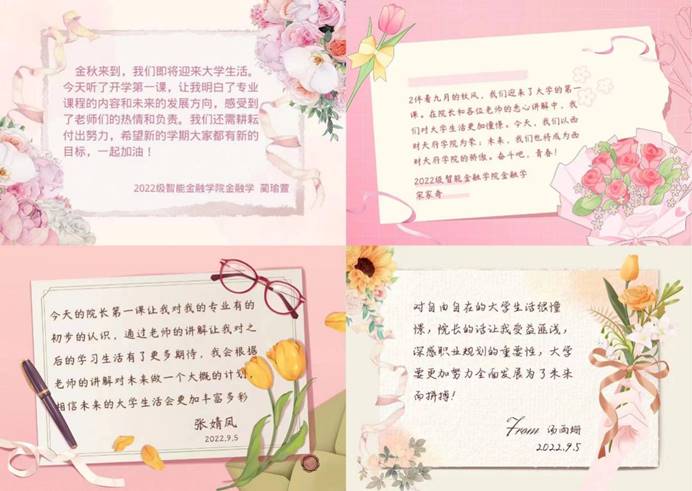 金秋来到，我们即将迎来大学生活。
今天听了开学第一课，让我明白了专业
课程的内容和未来的发展方向，感受到
了老师们的热情和负责。我们还需耕耘
付出努力，希望新的学期大家都有新的
目标，一起加油！
2022级智能金融学院金融学 蔺瑜萱
2伴着九月的秋风，我们迎来了大学的第一
课。在院长和各位老师的悉心讲解中，我
们对大学生活更加憧憬。今天，我们以西
财天府学院为荣；未来，我们也将成为西
财天府学院的骄傲。奋斗吧，青春！
2022级智能金融学院金融学
宋家奇
今天的院长第一课让我对我的专业有的
初步的认识，通过老师的讲解让我对之
后的学习生活有了更多期待，我会根据
老师的讲解对未来做一个大概的计划，
相信未来的大学生活会更加丰富多彩
张婧凤
2022.9.5
对自由自在的大学生活很憧
憬，院长的话让我受益匪浅，
深感职业规划的重要性，大学
要更加努力全面发展为了未来
而拼搏！
From 汤雨珊
2022.9.5